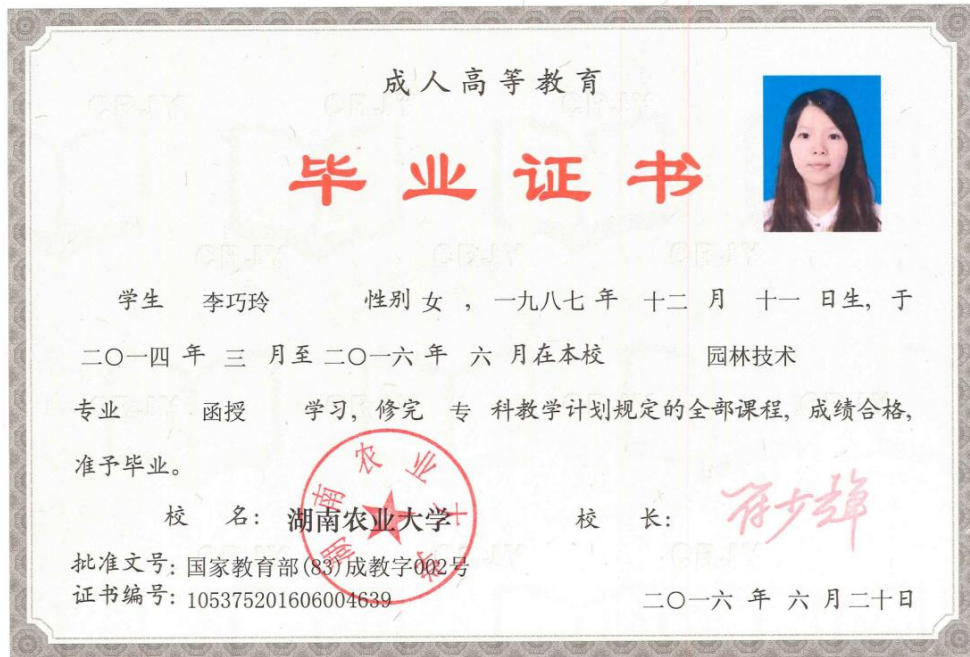 成人高等教育
毕业证书
学生 李巧玲 性别 女 ，一九八七 年 十二 月 十一 日生，于
二〇一四 年 三 月至 二〇一六 年 六 月在本校 园林技术
专业 函授 学习，修完 专 科教学计划规定的全部课程，成绩合格，
准予毕业。
校 名：湖南农业大学 校 长：符少辉
批准文号：国家教育部(83)成教字002号
证书编号：105375201606004639
二〇一六 年 六 月二十日
湖南农业大学